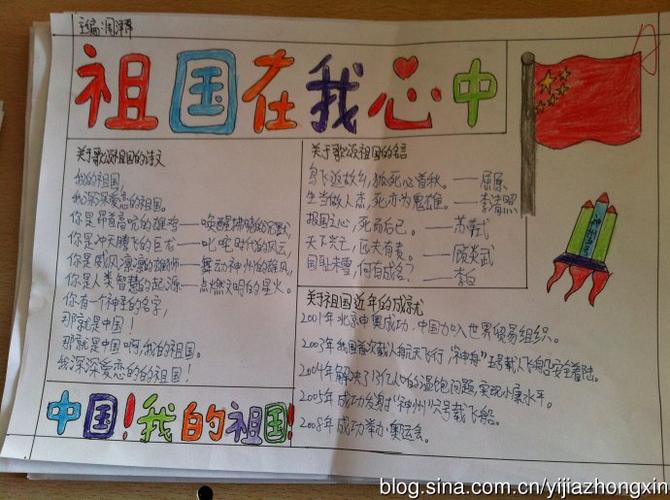 主编:周泽
祖国在我心中
关于歌颂祖国的诗文
我的祖国,
我深深爱恋的祖国。
你是昂首高吭的雄鸡——唤醒拂晓的沉默,
你是冲天腾飞的巨龙——叱咤时代的风云,
你是威风凛凛的雄狮——舞动神州的雄风,
你是人类智慧的起源——点燃文明的星火。
你有一个神圣的名字,
那就是中国!
那就是中国啊,我的祖国。
我深深爱恋的的祖国!
中国!我的祖国!
关于歌颂祖国的名言
鸟飞返故乡,狐死必首秋。——屈原
生当做人杰,死亦为鬼雄。——李清照
报国之心,死而后已。——苏轼
天下兴亡,匹夫有责。——顾炎武
国耻未雪,何由成名?——李白
关于祖国近年的成就
2001年北京申奥成功,中国加入世界贸易组织。
2003年我国首次载人航天飞行,"神舟"五号载人飞船安全着陆。
2004年解决了13亿人口的温饱问题,实现小康水平。
2005年成功发射"神州"六号载飞船。
2008年成功举办奥运会。
blog.sina.com.cn/yijiazhongxin